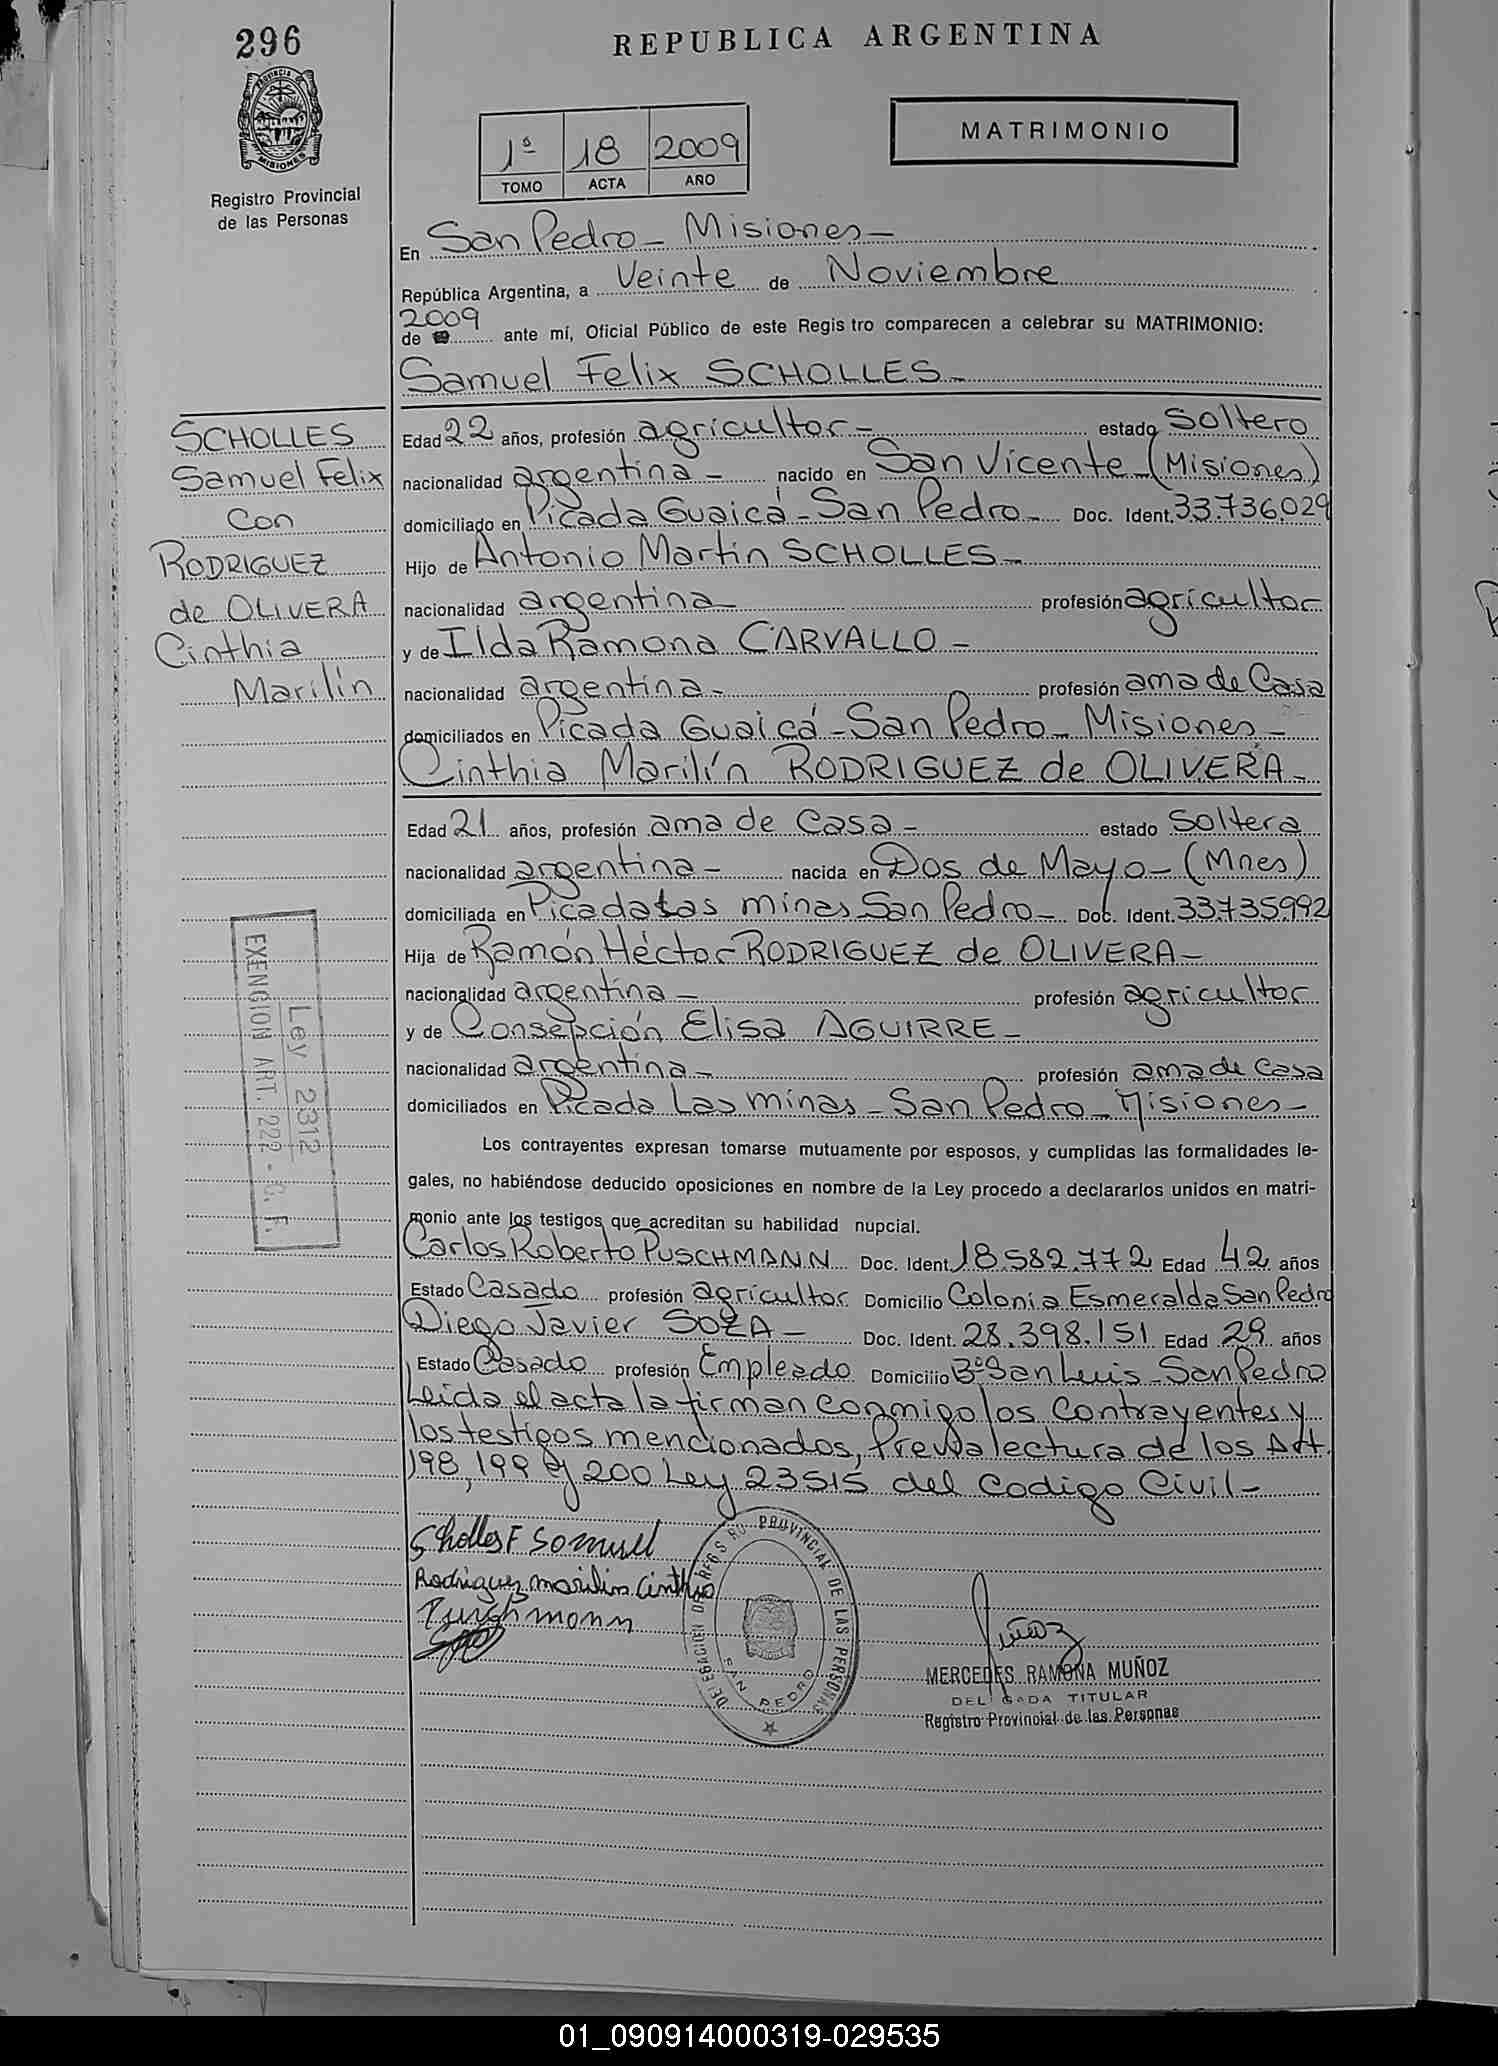 296
REPUBLICA ARGENTINA
PROVINCIA DE
MISIONES
Registro Provincial
de las Personas
1º 18 2009
TOMO ACTA AÑO
MATRIMONIO
En San Pedro - Misiones -
República Argentina, a Veinte de Noviembre
2009
de ante mí, Oficial Público de este Regis tro comparecen a celebrar su MATRIMONIO:
Samuel Felix SCHOLLES -
SCHOLLES
Samuel Felix
Con
RODRIGUEZ
de OLIVERA
Cinthia
Marilín
Edad 22 años, profesión agricultor - estado Soltero
nacionalidad argentina - nacido en San Vicente - (Misiones)
domiciliado en Picada Guaicá - San Pedro - Doc. Ident. 33.736.029
Hijo de Antonio Martin SCHOLLES -
nacionalidad argentina - profesión agricultor
y de Ilda Ramona CARVALLO -
nacionalidad argentina - profesión ama de Casa
domiciliados en Picada Guaicá - San Pedro - Misiones -
Cinthia Marilín RODRIGUEZ de OLIVERA -
Edad 21 años, profesión ama de Casa - estado Soltera
nacionalidad argentina - nacida en Dos de Mayo - (Mnes)
domiciliada en Picada Las minas San Pedro - Doc. Ident. 33.735.992
Hija de Ramón Héctor RODRIGUEZ de OLIVERA -
nacionalidad argentina - profesión agricultor
y de Consepción Elisa AGUIRRE -
nacionalidad argentina - profesión ama de Casa
domiciliados en Picada Las minas - San Pedro - Misiones -
Ley 2312
EXENCION ART. 222 - C. F.
Los contrayentes expresan tomarse mutuamente por esposos, y cumplidas las formalidades le-
gales, no habiéndose deducido oposiciones en nombre de la Ley procedo a declararlos unidos en matri-
monio ante los testigos que acreditan su habilidad nupcial.
Carlos Roberto PUSCHMANN Doc. Ident. 18.582.772 Edad 42 años
Estado Casado profesión agricultor Domicilio Colonia Esmeralda San Pedro
Diego Javier SOZA - Doc. Ident. 28.398.151 Edad 29 años
Estado Casado profesión Empleado Domicilio Bº San Luis - San Pedro
Leída el acta la firman conmigo los Contrayentes y
los testigos mencionados, Previa lectura de los Art.
198, 199 y 200 Ley 23515 del Codigo Civil -
Scholles F Samuel
Rodriguez marilin Cinthia
Puschmann
DELEGACION DEL REGISTRO PROVINCIAL DE LAS PERSONAS
SAN PEDRO
Muñoz
MERCEDES RAMONA MUÑOZ
DELEGADA TITULAR
Registro Provincial de las Personas
01_090914000319-029535